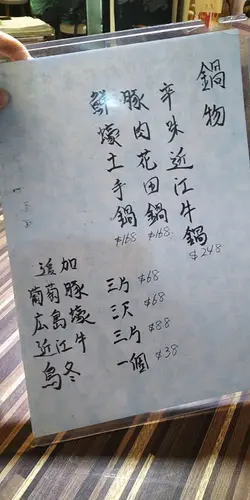 鍋物
辛味近江牛鍋 $248
豚肉花田鍋 $168
鮮壕土手鍋 $168
追加
葡萄豚 三片 $68
広島壕 三只 $68
近江牛 三片 $88
烏冬 一個 $38